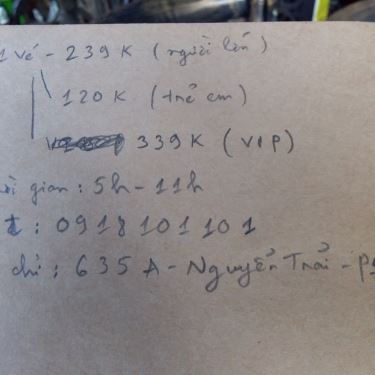 1 vé - 239K (người lớn)
120K (trẻ em)
339K (VIP)
gian : 5h - 11h
: 0918 101 101
chỉ : 635A - Nguyễn Trãi -